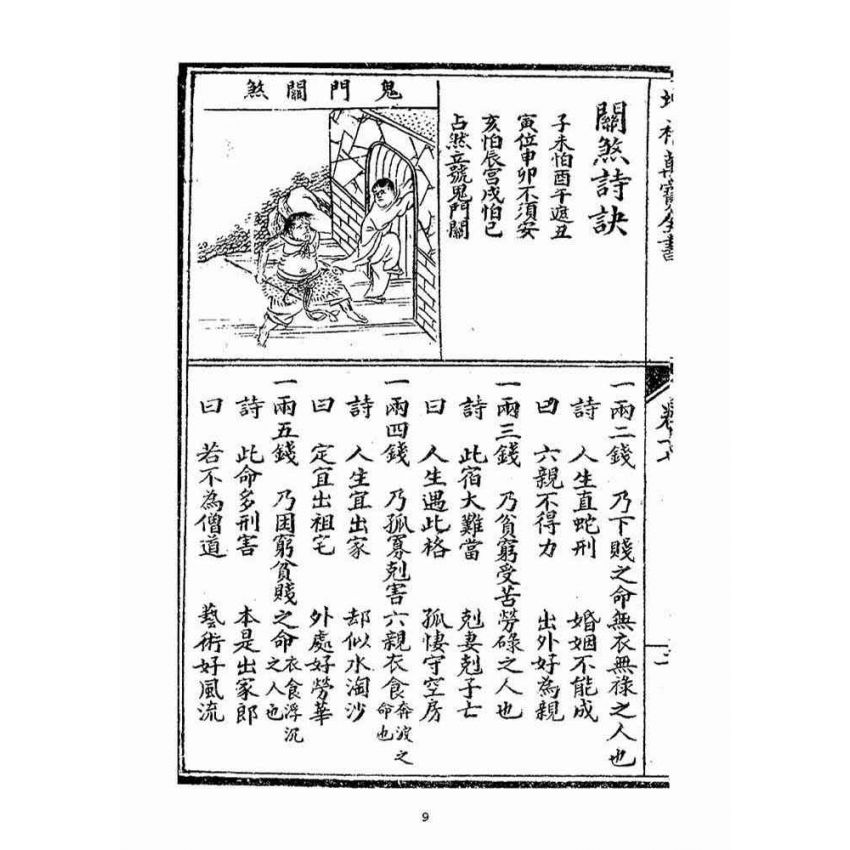 萬寶全書
關煞詩訣
子未怕酉午遮丑
寅位申卯不須安
亥怕辰宮戌怕巳
占然立號鬼門關
鬼門關煞
一兩二錢 乃下賤之命無衣無祿之人也
詩 人生直蛇刑 婚姻不能成
曰 六親不得力 出外好為親
一兩三錢 乃貧窮受苦勞碌之人也
詩 此宿大難當 尅妻尅子亡
曰 人生遇此格 孤悽守空房
一兩四錢 乃孤寡尅害六親衣食奔波之命也
詩 人生宜出家 却似水淘沙
曰 定宜出祖宅 外處好勞華
一兩五錢 乃困窮貧賤之命衣食浮沉之人也
詩 此命多刑害 本是出家郎
曰 若不為僧道 藝術好風流
9